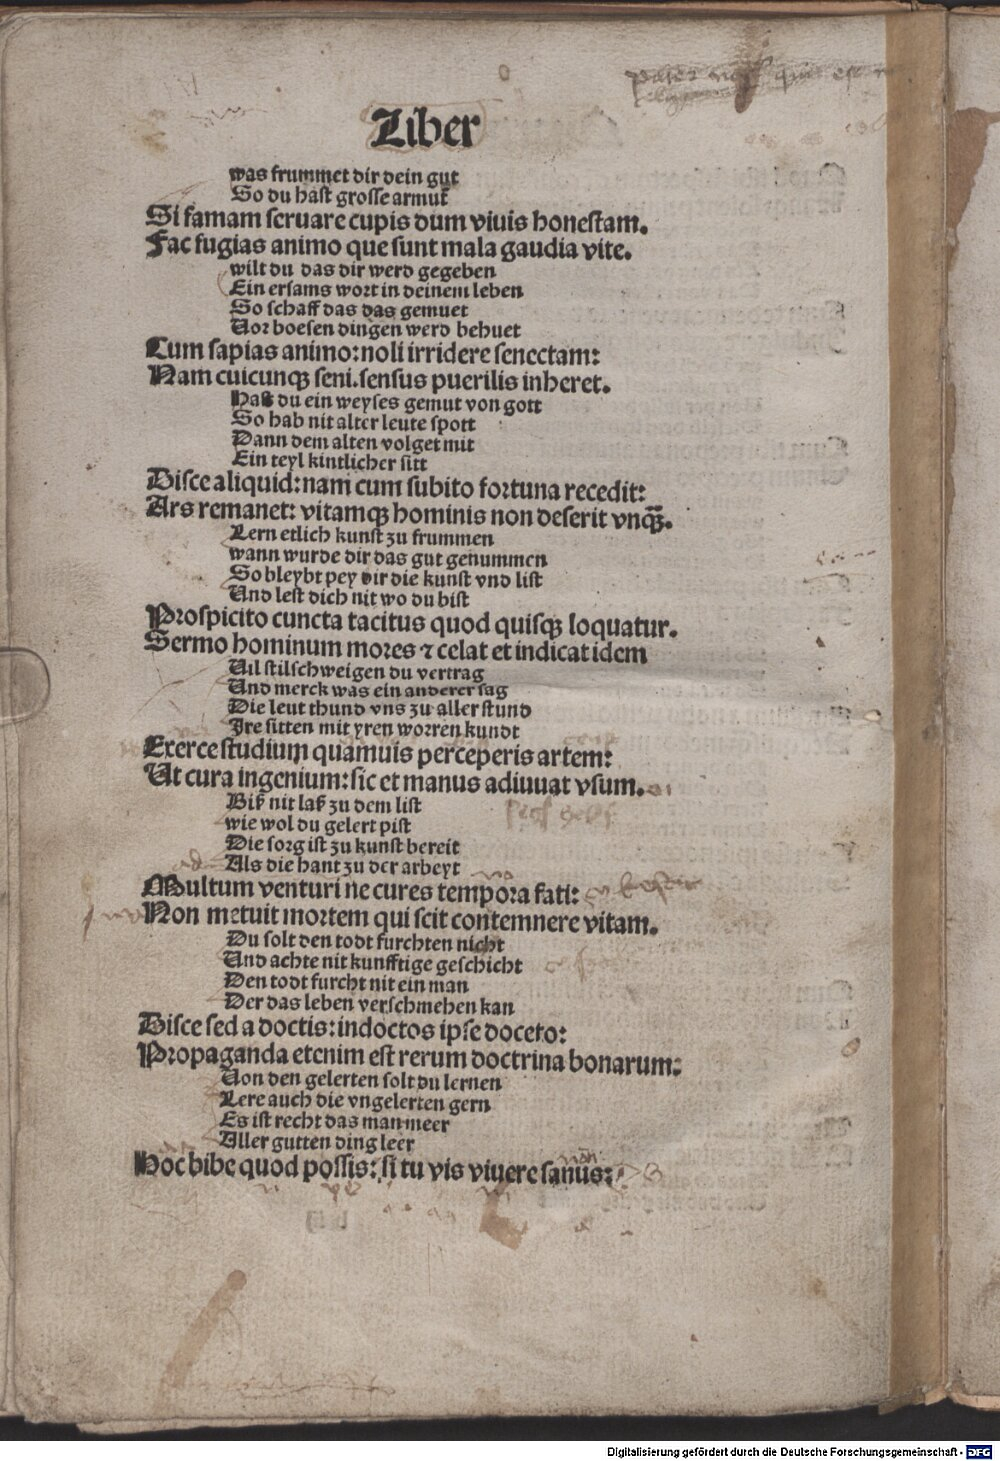 pater qui est
Liber
was frummet dir dein gut
So du hast grosse armut
Si famam seruare cupis dum viuis honestam.
Fac fugias animo que sunt mala gaudia vite.
wilt du das dir werd gegeben
Ein ersams wort in deinem leben
So schaff das das gemuet
Uor boesen dingen werd behuet
Cum sapias animo: noli irridere senectam:
Nam cuicunqꝫ seni. sensus puerilis inheret.
Hast du ein weyses gemut von gott
So hab nit alter leute spott
Dann dem alten volget mit
Ein teyl kintlicher sitt
Disce aliquid: nam cum subito fortuna recedit:
Ars remanet: vitamqꝫ hominis non deserit vnqꝫ̃.
Lern etlich kunst zu frummen
wann wurde dir das gut genummen
So bleybt pey dir die kunst vnd list
Und lest dich nit wo du bist
Prospicito cuncta tacitus quod quisqꝫ loquatur.
Sermo hominum mores ⁊ celat et indicat idem
Uil stilschweigen du vertrag
Und merck was ein anderer sag
Die leut thund vns zu aller stund
Ire sitten mit yren worren kundt
Exerce studium quamuis perceperis artem:
Ut cura ingenium: sic et manus adiuuat vsum.
Biß nit laß zu dem list
wie wol du gelert pist
Die sorg ist zu kunst bereit
Als die hant zu der arbeyt
Multum venturi ne cures tempora fati:
Non metuit mortem qui scit contemnere vitam.
Du solt den todt furchten nicht
Und achte nit kunfftige geschicht
Den todt furcht nit ein man
Der das leben verschmehen kan
Disce sed a doctis: indoctos ipse doceto:
Propaganda etenim est rerum doctrina bonarum:
Uon den gelerten solt du lernen
Lere auch die vngelerten gern
Es ist recht das man meer
Aller gutten ding leer
Hoc bibe quod possis: si tu vis viuere sanus:
Digitalisierung gefördert durch die Deutsche Forschungsgemeinschaft - DFG